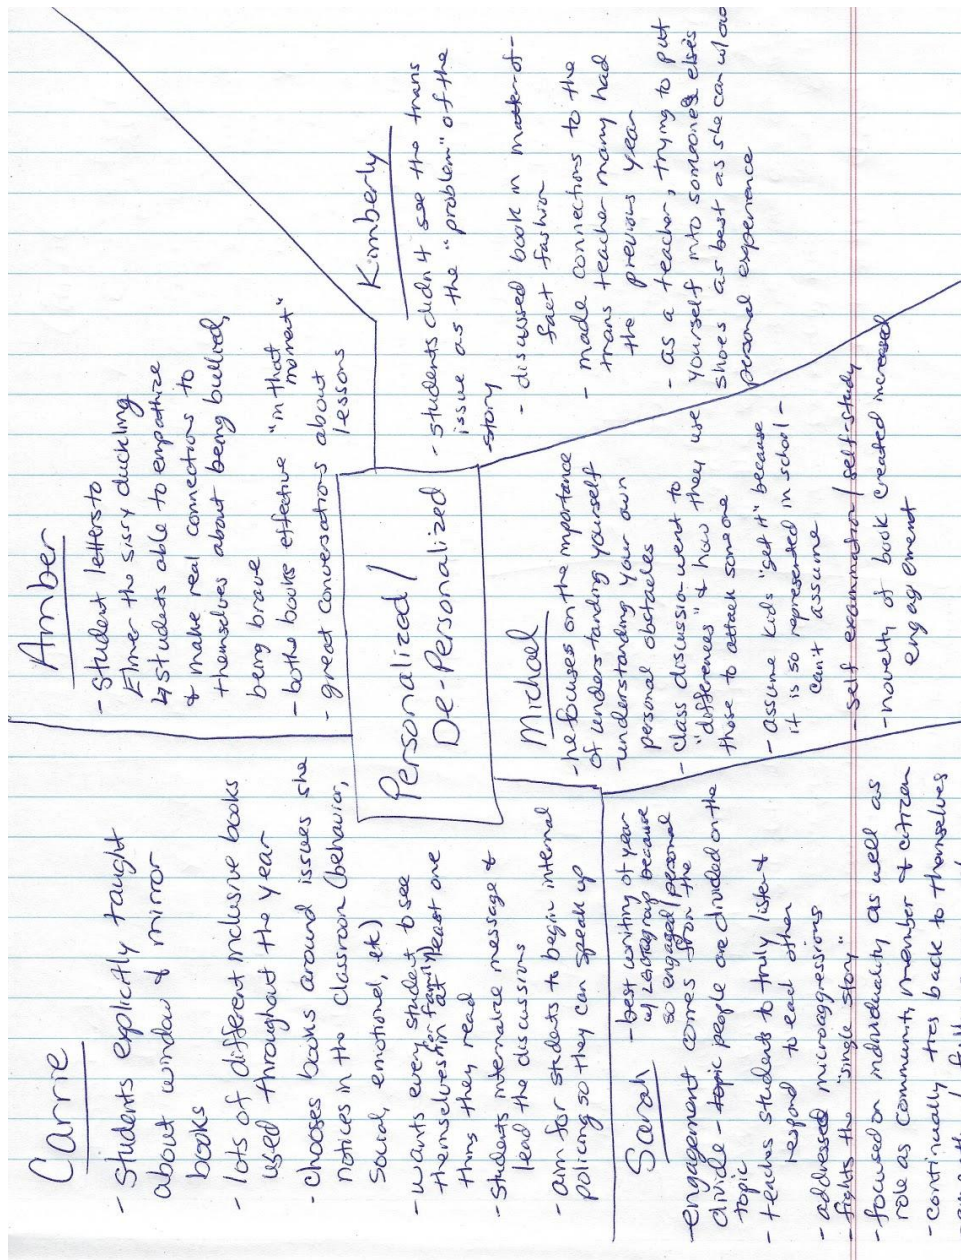 Carrie
- Students explicitly taught
about window & mirror
books
- lots of different inclusive books
used throughout the year
- chooses books around issues she
notices in the classroom (behavior,
social, emotional, etc)
- wants every student to see
themselves or family in at least one
thing they read
- Students internalize message &
lead the discussions
- aim for students to begin internal
policing so they can speak up
Amber
- Student letters to
Elmer the sissy duckling
↳ students able to empathize
& make real connections to
themselves about being bullied,
being brave
- bothe books effective "in that
moment"
- great conversations about
lessons
Personalized /
De-Personalized
Kimberly
- students didn't see the trans
issue as the "problem" of the
story
- discussed book in matter-of-
fact fashion
- made connections to the
trans teacher many had
the previous year
- as a teacher, trying to put
yourself into someone else's
shoes as best as she can w/out
personal experience
Michael
- he focuses on the importance
of understanding yourself
- understanding your own
personal obstacles
- class discussion went to
"differences" & how they use
those to attack someone
- assume kids "get it" because
it is so represented in school -
can't assume
- self examination / self-study
- novelty of book created increased
engagement
Sarah
- best writing of year
w/ because
so engaged / personal
- engagement comes from the
divide - topic people are divided on the
topic
- teaches students to truly listen &
respond to each other
- addressed microaggressions
- fights the "single story"
- focused on individuality as well as
role as community member & citizen
- continually ties back to themselves